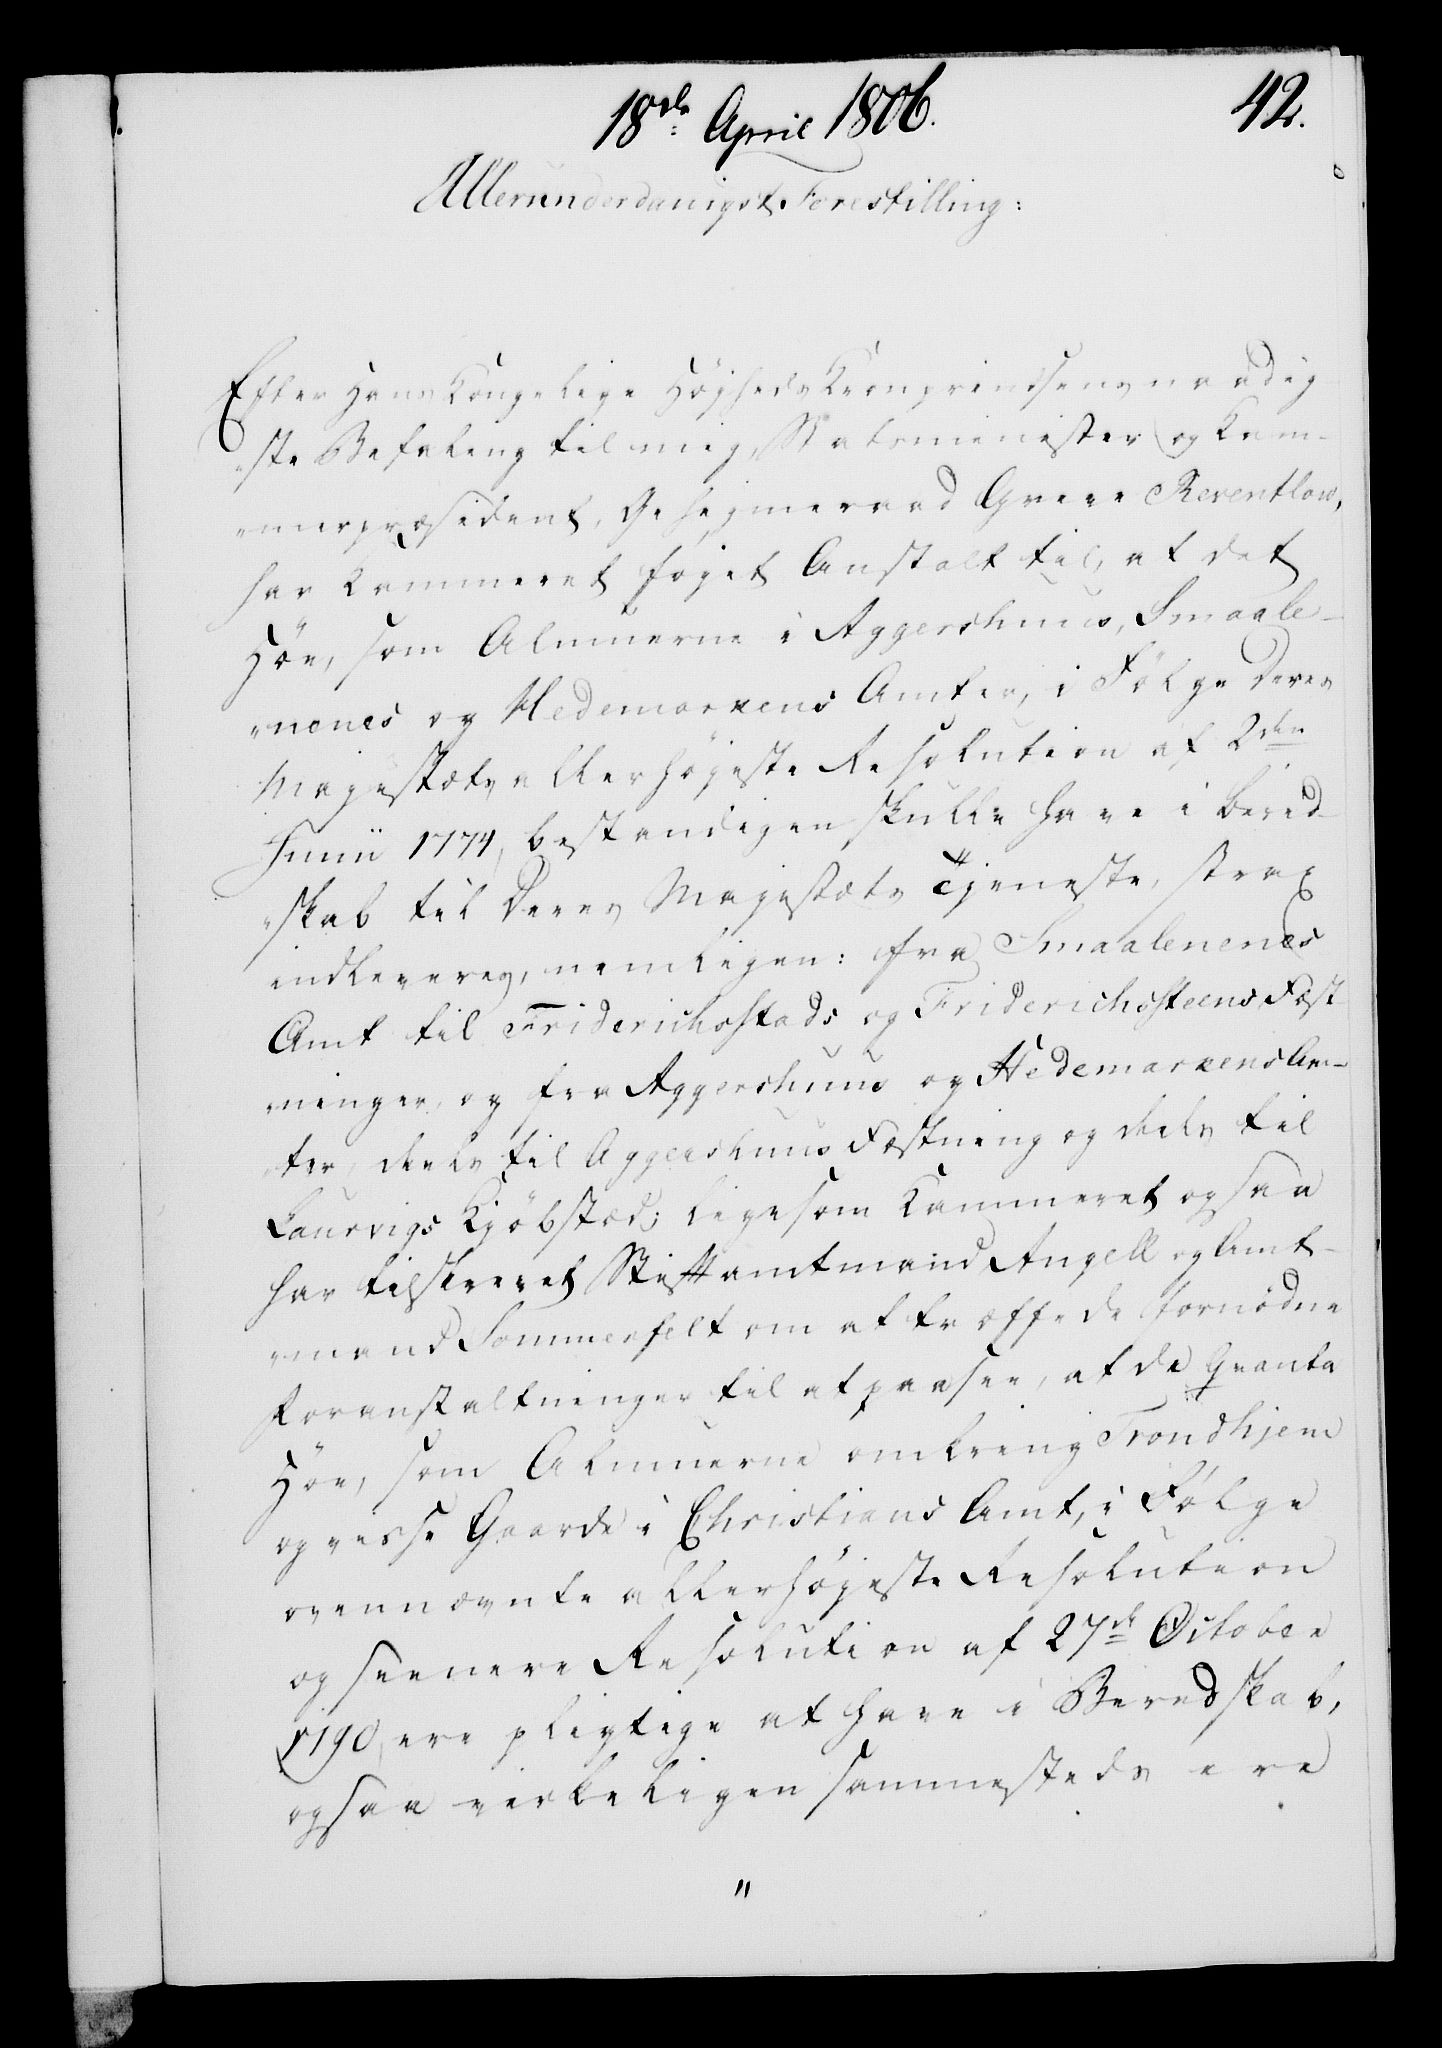 18de April 1806.
42.
Allerunderdanigst Forestilling:
Efter Hans Kongelige Höjheds Kronprindsens naadig-
"ste Befaling til mig, Statsminister og Kam-
"merpræsident, Gehejmeraad Greve Reventlow,
har Kammeret föjet Anstalt til, at det
Höe, som Almuerne i Aggershuus, Smaale-
"nenes og Hedemarkens Amter, i Fölge Deres
Majestæts allerhöjeste Resolution af 2den
Junii 1774, bestandigen skulle have i bered-
"skab til Deres Majestæts Tjeneste, strax
indleveres, nemligen: fra Smaalenenes
Amt til Friderichstads og Friderichsteens Fæst
"ninger, og fra Aggershuus og Hedemarkens Am-
"ter, deels til Aggershuus Fæstning og deels til
Laurvigs Kjöbstæd; ligesom Kammeret ogsaa
har tilskrevet Stiftamtmand Angell og Amt-
"mand Sommerfelt om at træffe de fornödne
Foranstaltninger til at paasee, at de Qvanta
Höe, som Almuerne omkring Trondhjem
og visse Gaarde i Christians Amt, i Fölge
ovennævnte allerhöjeste Resolution
og seenere Resolution af 27de October
1790, ere pligtige at have i Beredskab,
ogsaa virkeligen sammesteds ere
"